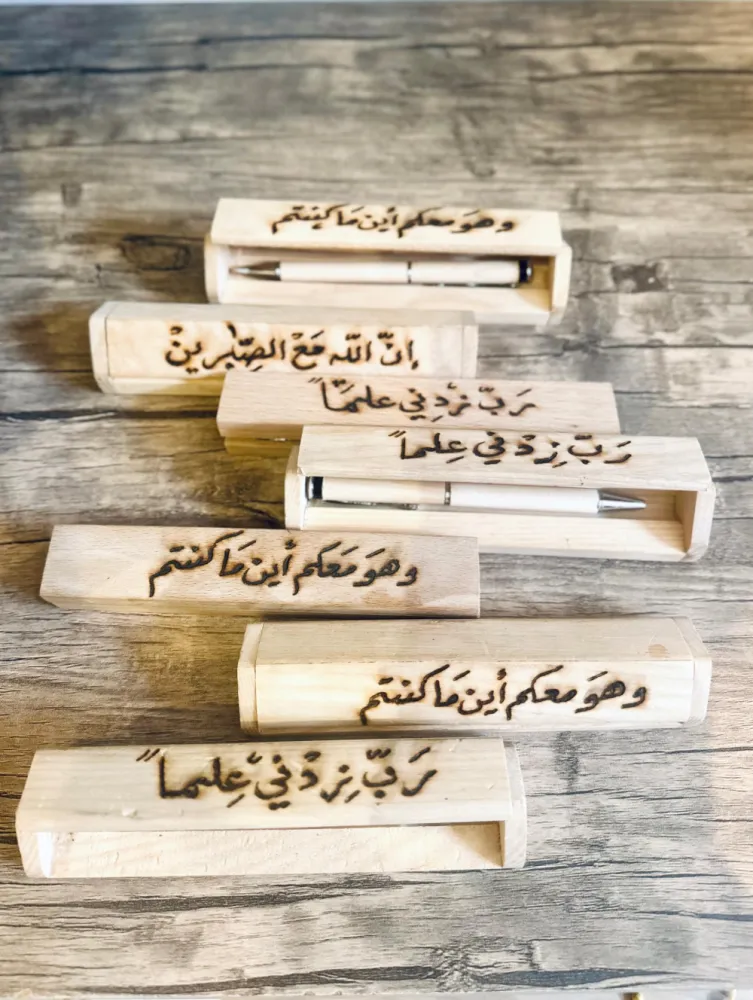 وهوَ معكم أين مَا كنتم
إنّ اللّه مَعْ الصّٰبرينْ
رَبّ زدني علمًا
رَبّ زِدْني عِلماً
وهوَ مَعَكم أين مَا كنتم
وهوَ معَكم أين مَا كنتم
رَبّ زِدْني عِلماً